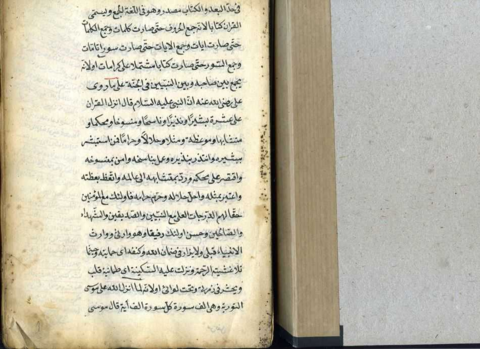 في هذا البعد والكتاب مصدر وهو في اللغة الجمع ويسمى
القرآن كتابا لانه جمع الحروف حتى صارت كلمات وجمع الكلمات
حتى صارت ايات وجمع الايات حتى صارت سورا
وجمع السور حتى صارت كتابا مشتملا على كرامات اولانه
يجمع بين صاحبه وبين النبيين في الجنة على ما روى
على رضى الله عنه ان النبي عليه السلام قال انزل القرآن
على عشرة بشيرا ونذيرا وناسخا ومنسوخا ومحكما و
متشابها وموعظة ومثلا وحلالا وحراما فمن استبشر
ببشيره وانتذر بنذيره وعمل بناسخه وامن بمنسوخه
واقتصر على محكمه ورد متشابهه الى عالمه واتعظ بعظته
واعتبر بمثله واحل حلاله وحرم حرامه فاولئك مع المؤمنين
حقا لهم الدرجات العلى مع النبيين والصديقين والشهداء
والصالحين وحسن اولئك رفيقا وهو وارثى ووارث
الانبياء قبلى ولا يزال في ضمان الله وكنفه اى
تلا غشيته الرحمة ونزلت عليه السكينة اى طمانية قلب
ويحشر في زمرتى وتحت لوائى اولانه لما انزل الله على موسى
التورية وهى الف سورة كل سورة الف آية قال موسى